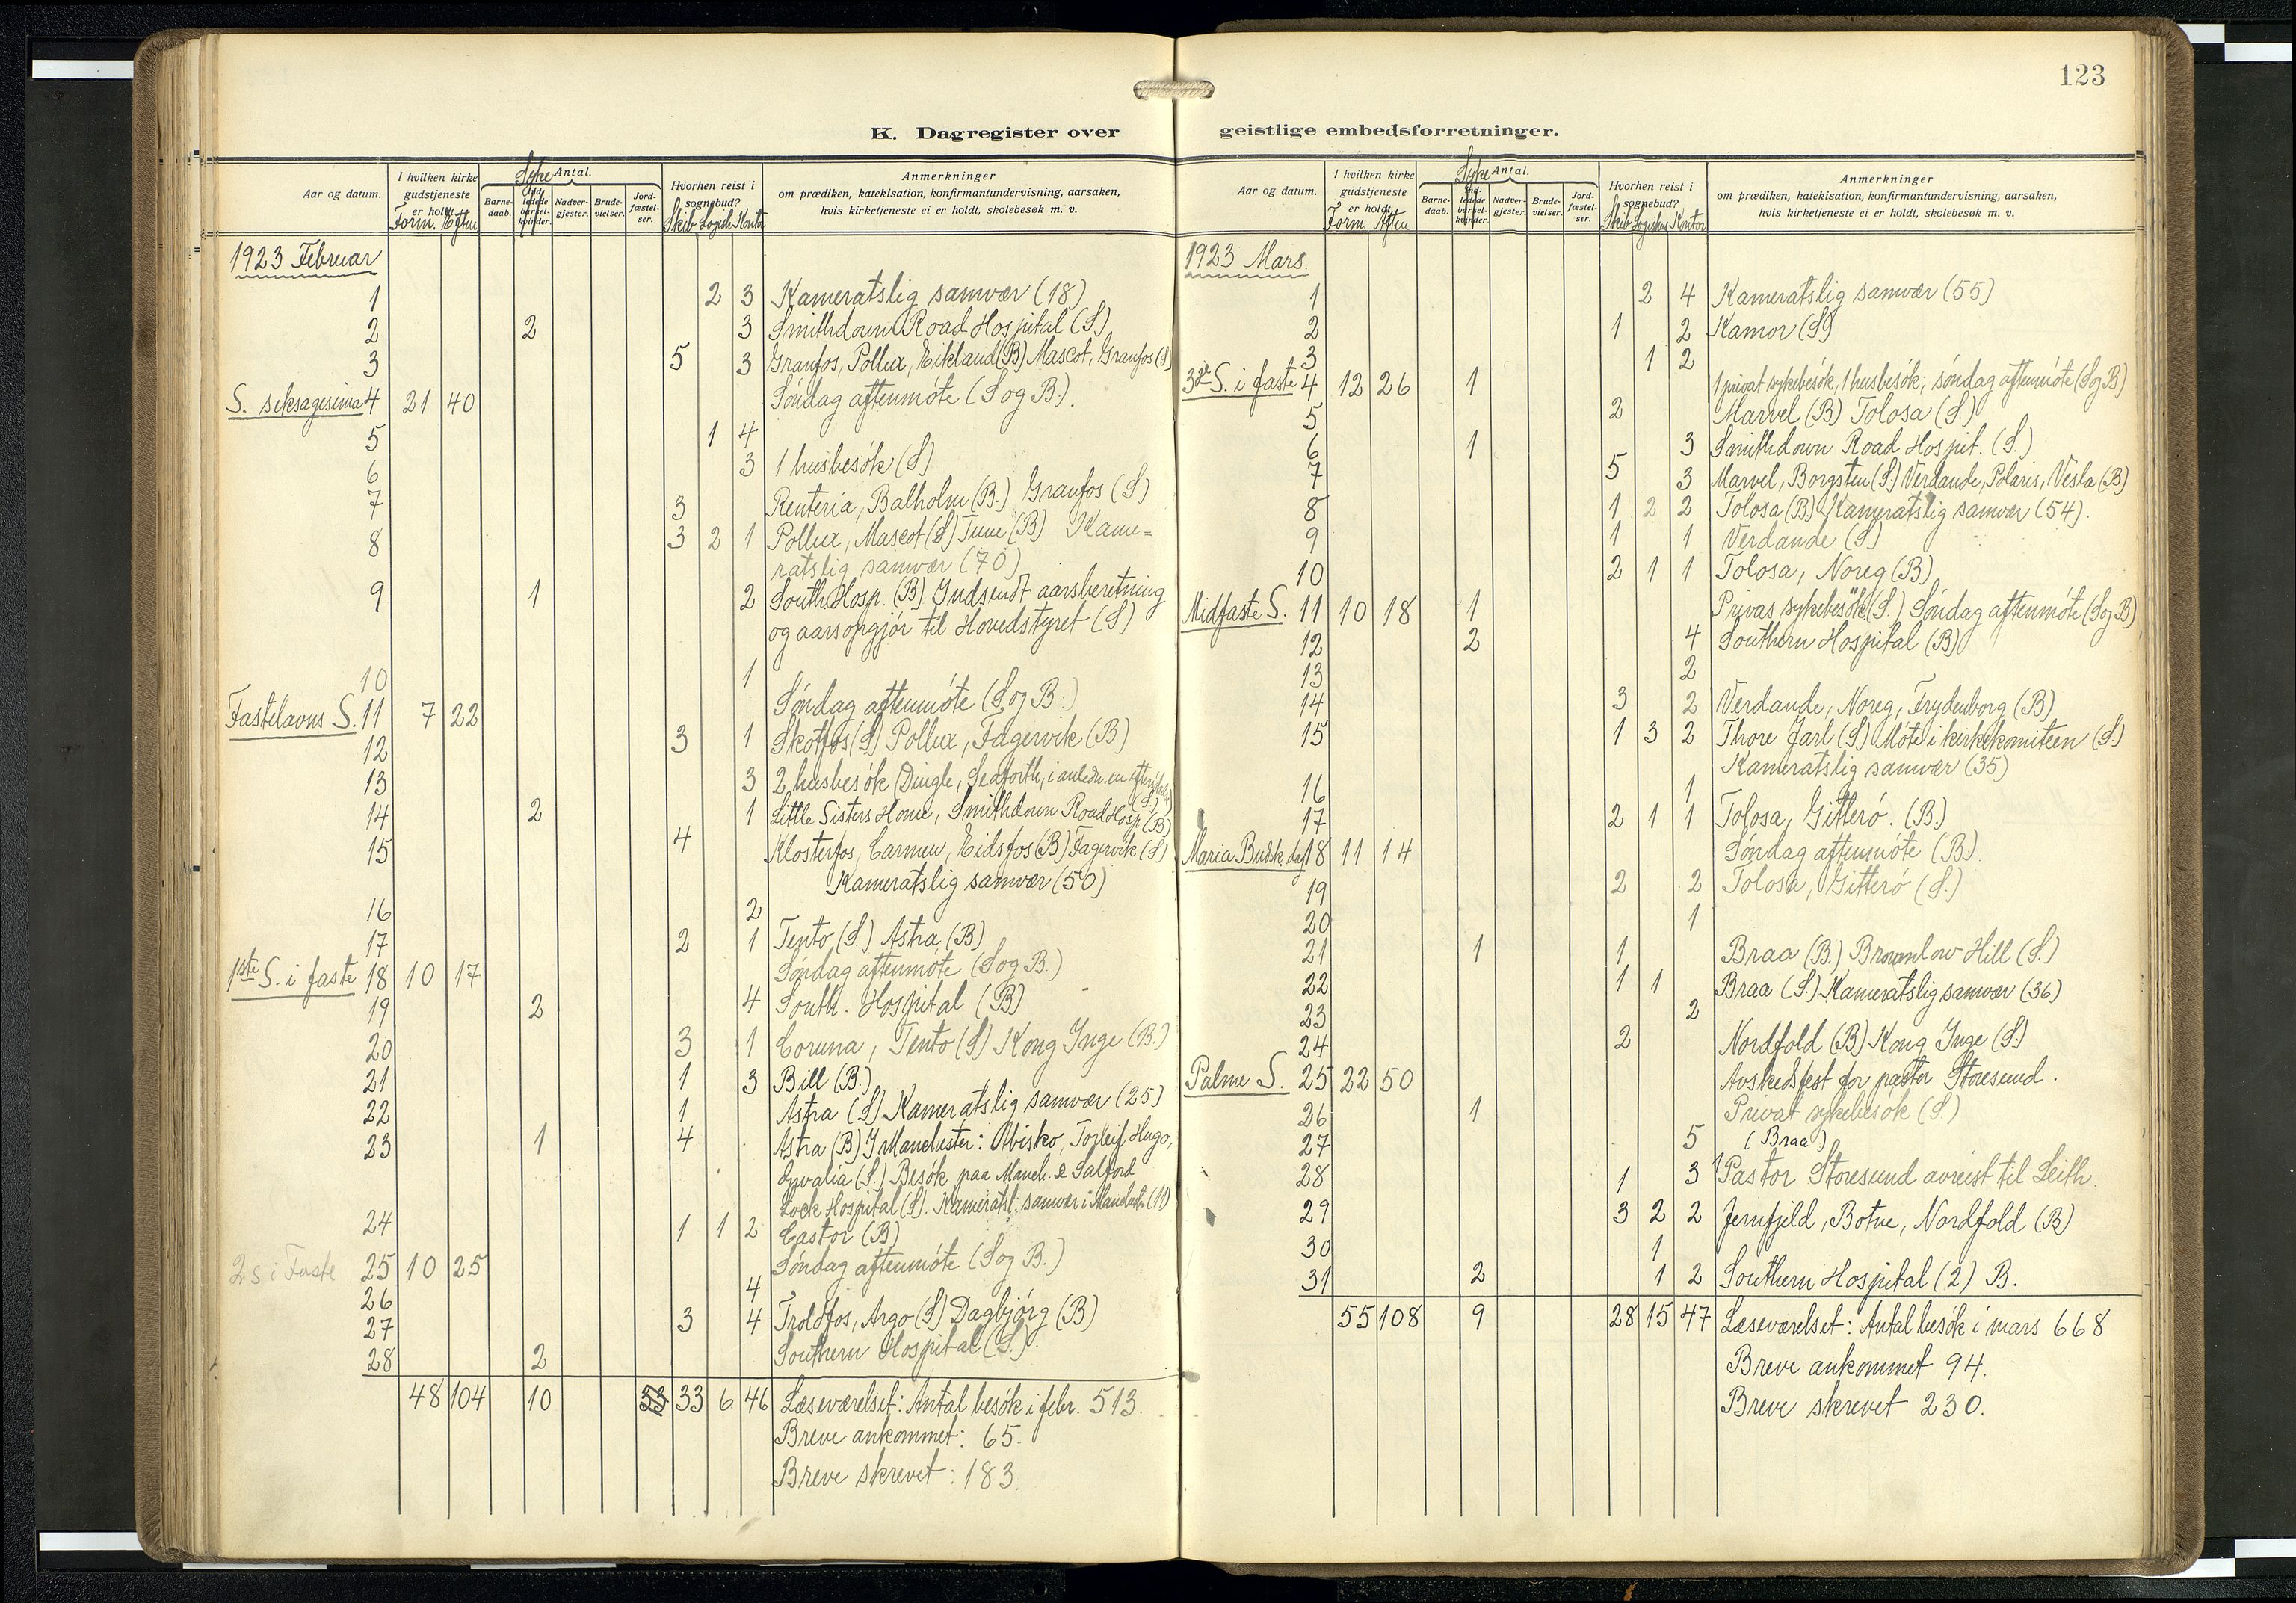 123
K. Dagregister over geistlige embedsforretninger.
Aar og datum.
I hvilken kirke gudstjeneste er holdt.
Form. Aften
Syke
Antal.
Barne-daab.
Ind-ledede barsel-kvinder.
Nadver-gjester.
Brude-vielser.
Jord-fæstel-ser.
Hvorhen reist i sognebud?
Skib Logish. Kontor
Anmerkninger
om prædiken, katekisation, konfirmantundervisning, aarsaken,
hvis kirketjeneste ei er holdt, skolebesøk m. v.
1923 Februar
1 2 3 Kameratslig samvær (18)
2 2 3 Smithdown Road Hospital (S)
3 5 3 Granfos, Pollux, Eikland (B) Mascot, Granfos (S)
S. seksagesima 4 21 40 Søndag aftenmøte (S og B.).
5 1 4
6 3 1 husbesök (S)
7 3 Renteria, Balholm (B.) Granfos (S)
8 3 2 1 Pollux, Mascot (S) Tune (B) Kame-
ratslig samvær (70)
9 1 2 South. Hosp. (B) Indsendt aarsberetning
og aarsopgjør til Hovedstyret (S)
10 1
Fastelavns S. 11 7 22 Søndag aftenmøte (S og B.)
12 3 1 Skotfos (S) Pollux, Fagervik (B)
13 3 2 husbesök (Dingle, Seaforth, i anledn. en
14 2 1 Little Sisters Home, Smithdown Road Hosp (B)
15 4 Klosterfos, Carmen, Eidsfos (B) Fagervik (S)
Kameratslig samvær (50)
16 2
17 2 1 Tento (S.) Astra (B)
1ste S. i faste 18 10 17 Søndag aftenmøte (S og B.)
19 2 4 South. Hospital (B)
20 3 1 Coruna, Tento (S) Kong Inge (B.)
21 1 3 Bill (B.)
22 1 Astra (S) Kameratslig samvær (25)
23 1 4 Astra (B) I Manchester: Abisko, Torleif Hugo,
(S.) Besök paa Manch. & Salford
Lock Hospital (S). Kameratsl. samvær i Manchester (11)
24 1 1 2 Castor (B)
2 s i Faste 25 10 25 Søndag aftenmøte (S og B.)
26 4
27 3 4 Troldfos, Argo (S) Dagbjørg (B)
28 2 Southern Hospital (S.)
48 104 10 33 33 6 46 Læseværelset: Antal besök i febr. 513.
Breve ankommet: 65.
Breve skrevet: 183.
Aar og datum.
I hvilken kirke gudstjeneste er holdt.
Form. Aften
Syke
Antal.
Barne-daab.
Ind-ledede barsel-kvinder.
Nadver-gjester.
Brude-vielser.
Jord-fæstel-ser.
Hvorhen reist i sognebud?
Skib Logishus Kontor
Anmerkninger
om prædiken, katekisation, konfirmantundervisning, aarsaken,
hvis kirketjeneste ei er holdt, skolebesøk m. v.
1923 Mars.
1 2 4 Kameratslig samvær (55)
2 1 2 Kamor (S)
3 1 2
3die S. i faste 4 12 26 1 1 privat sykebesök, 1 husbesök; søndag aftenmøte (S og B)
5 2 Marvel (B) Tolosa (S.)
6 1 3 Smithdown Road Hospit. (S.)
7 5 3 Marvel, Borgsten (S.) Verdande, Polaris, Vesla (B)
8 1 2 2 Tolosa (B) Kameratslig samvær (54).
9 1 1 Verdande (S)
10 2 1 1 Tolosa, Noreg (B)
Midfaste S. 11 10 18 1 Privas sykebesök (S.) Søndag aftenmøte (S og B)
12 2 4 Southern Hospital (B)
13 2
14 3 2 Verdande, Noreg, Frydenborg (B)
15 1 3 2 Thore Jarl (S) Møte i kirkekomiteen (S)
Kameratslig samvær (35)
16 1
17 2 1 1 Tolosa, Gitterö. (B.)
Maria Budsk. dag 18 11 14 Søndag aftenmøte (B).
19 2 2 Tolosa, Gitterö (S.)
20 1
21 1 1 Braa (B.) Brownlow Hill (S.)
22 1 1 Braa (S.) Kameratslig samvær (36)
23 2
24 2 Nordfold (B) Kong Inge (S.)
Palme S. 25 22 50 Avskedsfest for pastor Storesund.
26 1 Privat sykebesök (S.)
27 5 (Braa)
28 1 3 Pastor Storesund avreist til Leith.
29 3 2 2 Jernfjeld, Botne, Nordfold (B)
30 1
31 2 1 2 Southern Hospital (2) B.
55 108 9 28 15 47 Læseværelset: Antal besök i mars 668
Breve ankommet 94.
Breve skrevet 230.